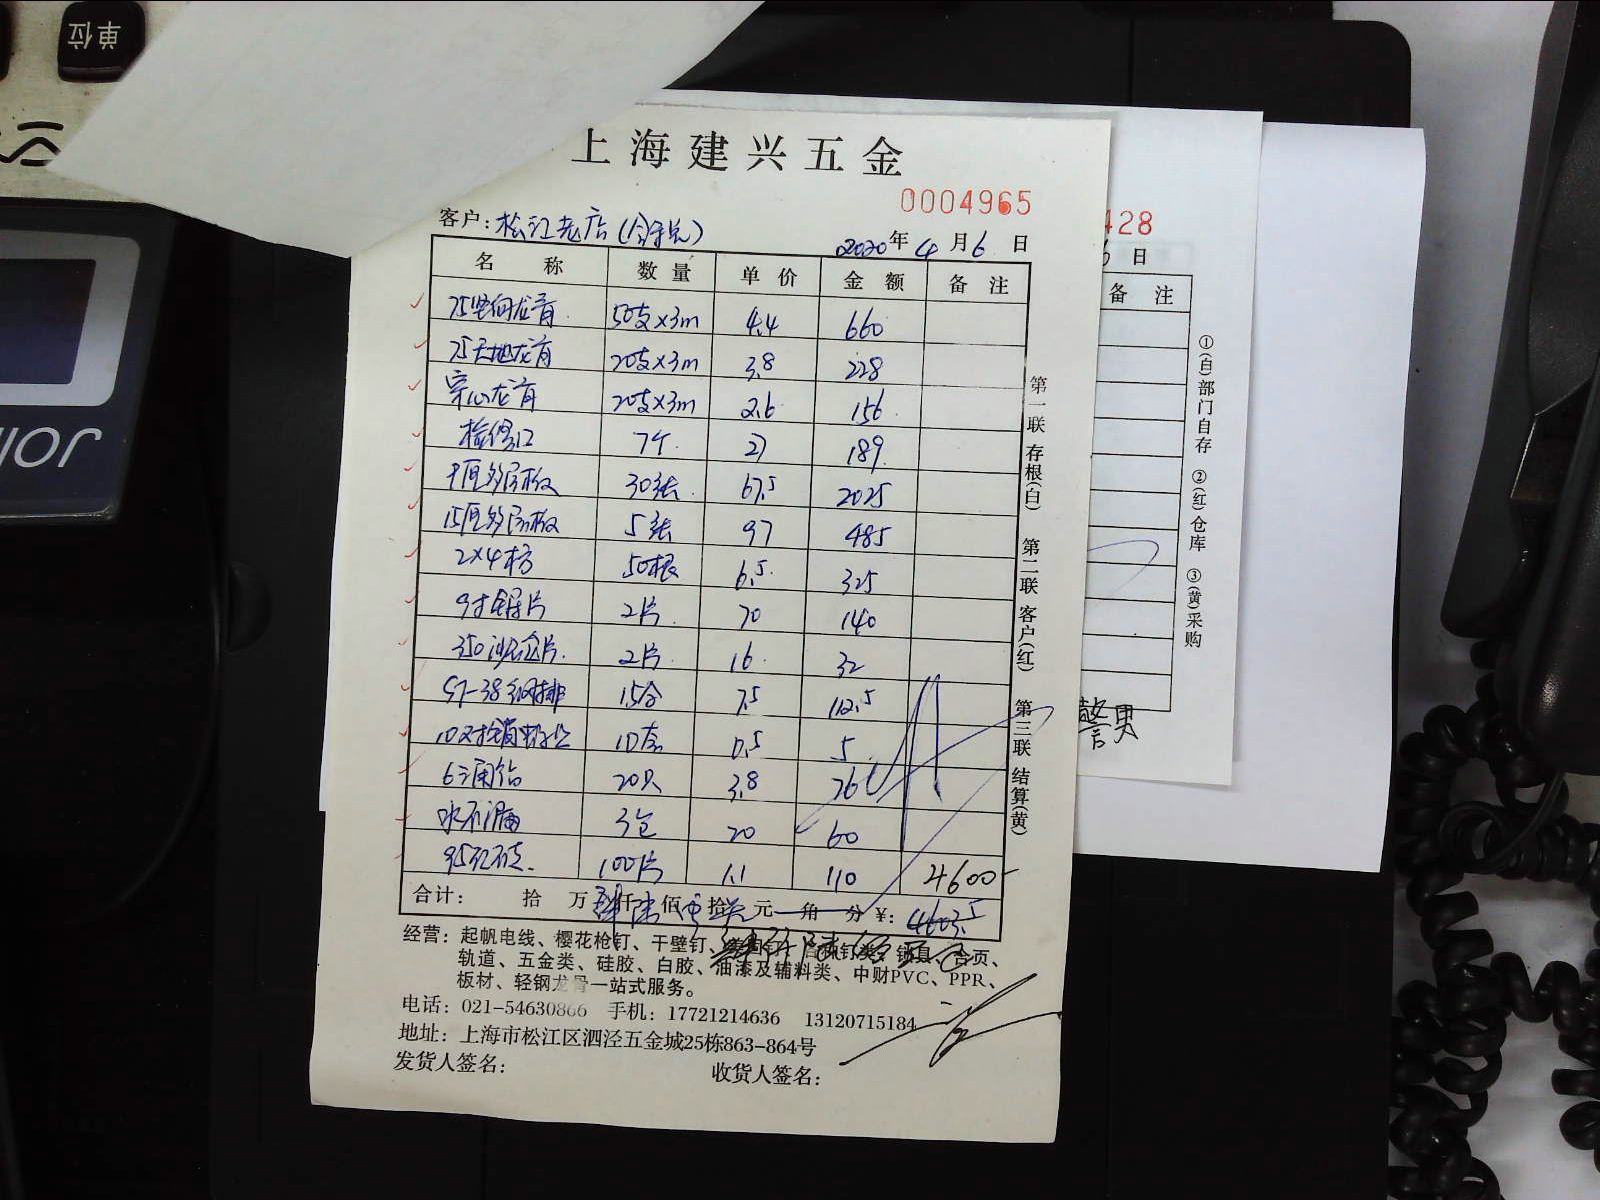 单位
JOIN
上海建兴五金
0004965
客户: 松江老店(含税)
2020年4月6日
名称 数量 单价 金额 备注
75竖向龙骨 50支×3m 4.4 660
75天地龙骨 20支×3m 3.8 228
穿心龙骨 20支×3m 2.6 156
检修口 7个 27 189
9厘多层板 30张 67.5 2025
15厘多层板 5张 97 485
2×4木方 50根 6.5 325
9寸锯片 2片 70 140
350 片 2片 16 32
ST-38钢排 15合 7.5 112.5
10 10套 0.5 5
6 20只 3.8 76
水不漏 3包 20 60
95红砖 100片 1.1 110 4600-
合计: 拾 万 肆仟陆佰零拾 元 角 分 ¥: 4603.5
经营: 起帆电线、樱花枪钉、干壁钉、 钉类、锁具、合页、
轨道、五金类、硅胶、白胶、油漆及辅料类、中财PVC、PPR、
板材、轻钢龙骨一站式服务。
电话: 021-54630866 手机: 17721214636 13120715184
地址: 上海市松江区泗泾五金城25栋863-864号
发货人签名: 收货人签名:
第一联 存根(白) 第二联 客户(红) 第三联 结算(黄)
428
6日
备注
①(白)部门自存 ②(红)仓库 ③(黄)采购